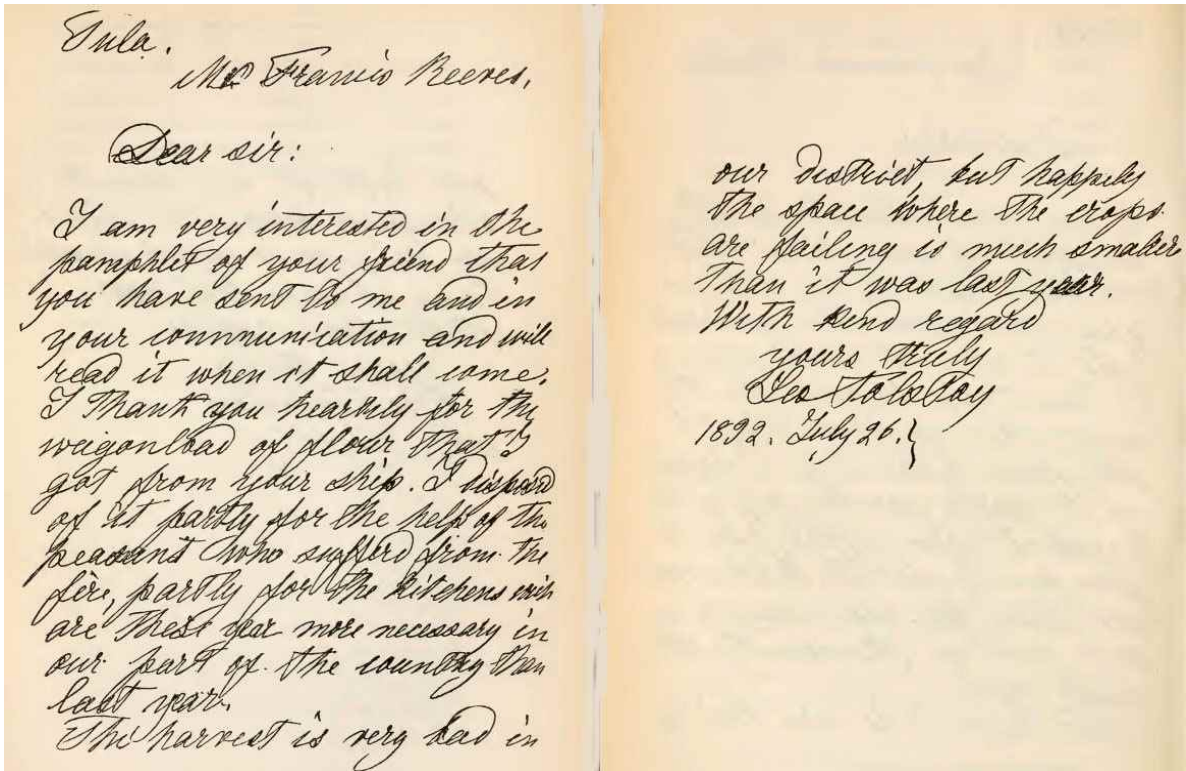 Tula.
Mr Francis Reeves.
Dear sir:
I am very interested in the
pamphlet of your friend that
you have sent to me and in
your communication and will
read it when it shall come.
I thank you heartily for the
waigonload of flour that I
got from your ship. I disposed
of it partly for the help of the
peasants who sufferd from the
fire, partly for the kitchens wich
are these year more necessary in
our part of the country than
last year.
The harvest is very bad in
our district, but happely
the space where the crops
are failing is much smaler
than it was last year.
With kind regard
yours truly
Leo Tolstoy
1892. July 26.